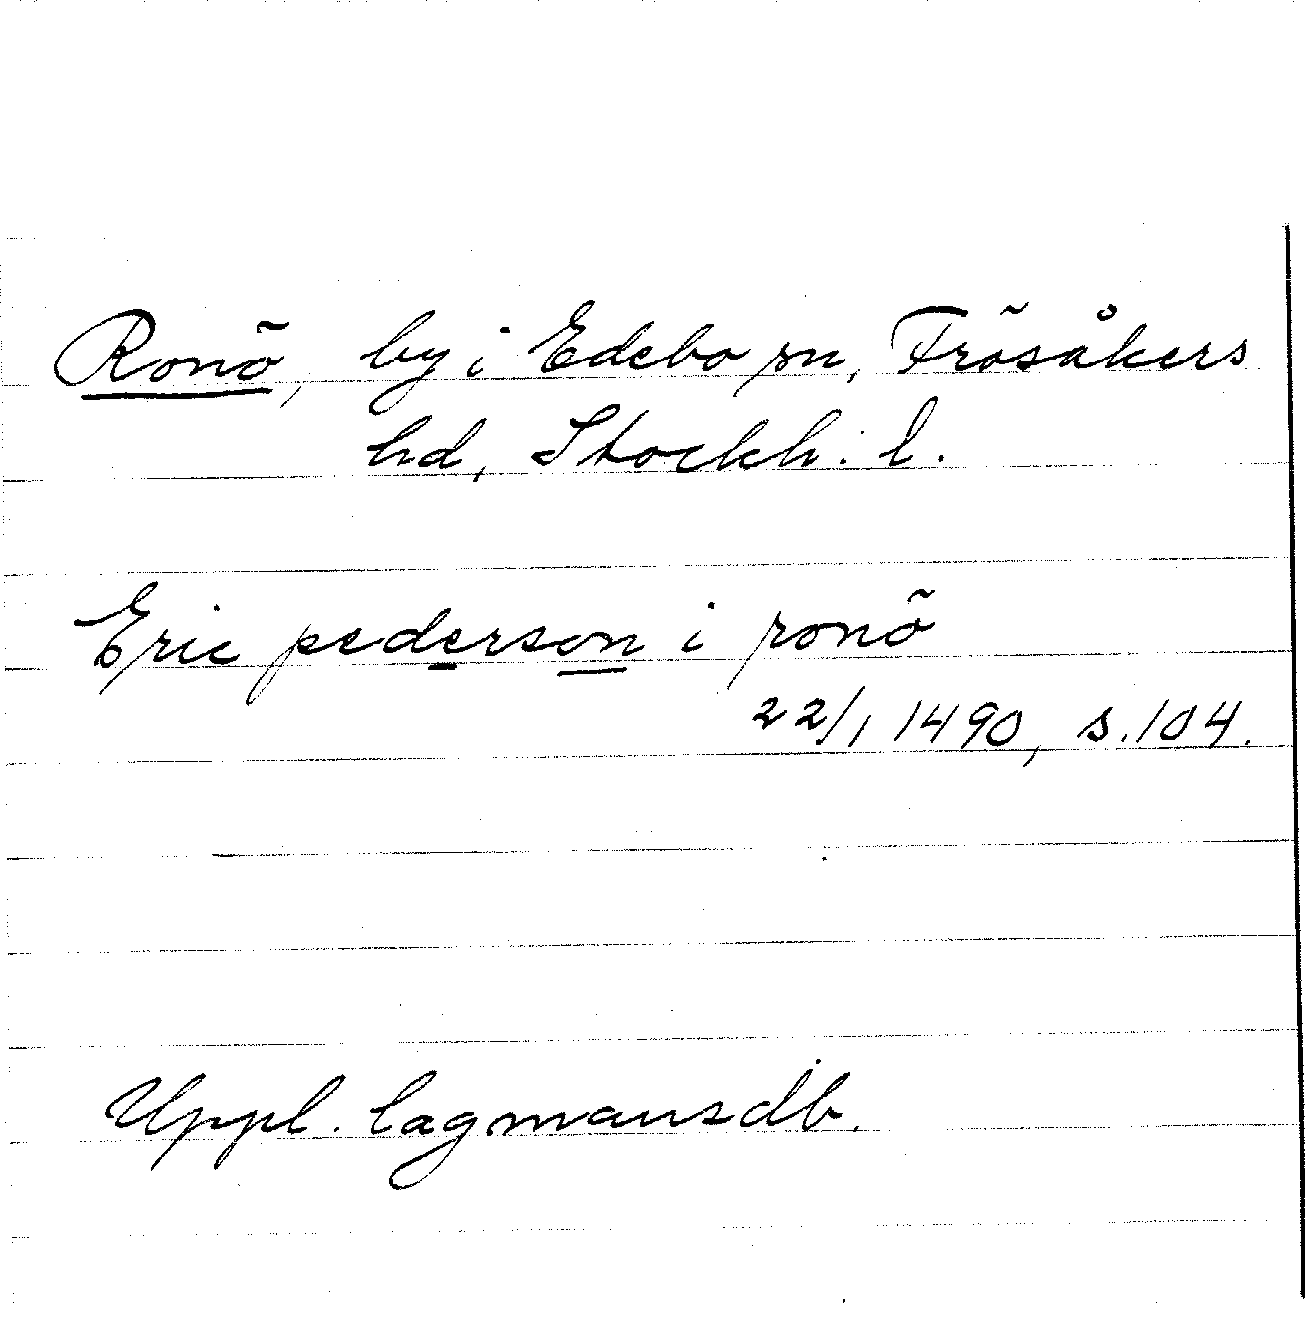 Ronö, by i Edebo sn, Frösåkers
hd, Stockh. l.
Eric pederson i ronö
22/1 1490, s. 104.
Uppl. lagmansdb.